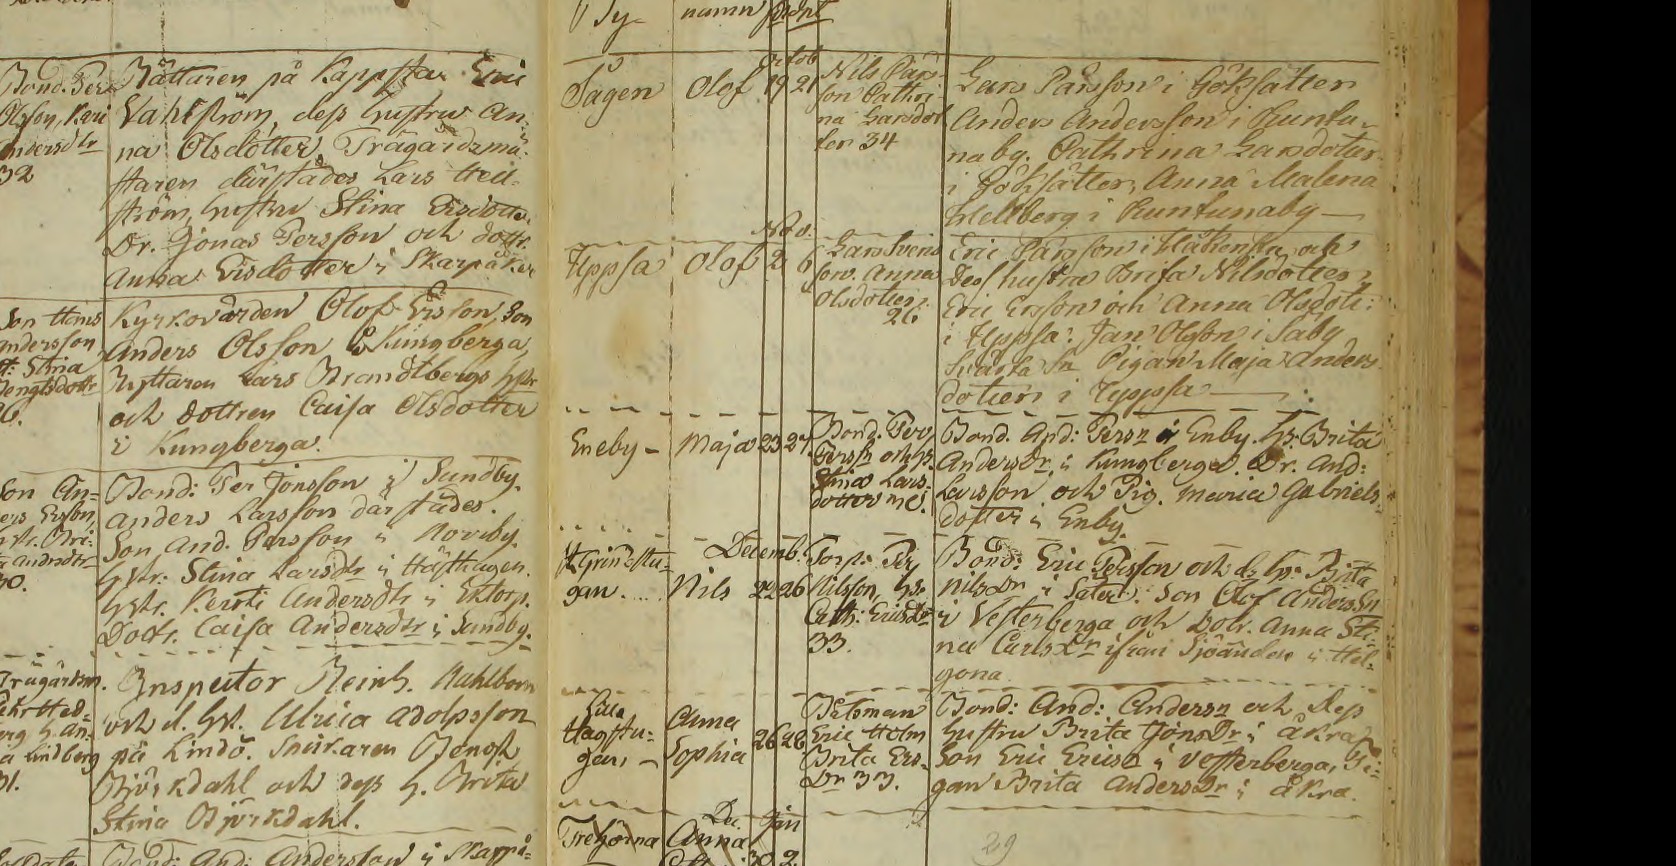 Bond. Per
Olsson, Kari
Andersdtr
32
Rättaren på Kappsta Eric
Vahlström, dess hustru An-
na Olsdotter, Trägårdzmä-
staren därstädes Lars Hell-
ström, hustru Stina Ersdotter
Dr. Jonas Persson och dottr.
Anna Ersdotter i Skarpåker
Son Hans
Andersson
Stina
Bengtsdottr
26.
Kyrkovärden Olof Ersson, Son
Anders Olsson i Kungberga,
Ryttaren Lars Brandtbergs hstr
och dottren Caisa Olsdotter
i Kungberga.
Son An-
ders Ersson,
30.
Bond: Per Jönsson i Sundby.
Anders Larsson därstädes.
Son And. Persson i Norrby.
hstr: Stina Larsdtr i Hästhagen.
hstr. Kersti Andersdtr i Ektorp.
Dottr. Caisa Andersdtr i Sundby.
Trägårdsm.
Hed-
berg h. An-
na Lindberg
31.
Inspector Reinh. Wahlbom
och d. hst. Ulrica Adolpsson
på Lindö. Snickaren Bengt
Björkdahl och dess h. Brita
Stina Björkdahl.
Bond: And: Andersson i Skarpå-
By namn födt
Octob
Sågen Olof 19 21
Nils Pärs-
son Cathri-
na Larsdot
ter 34
Lars Pärsson i Göksätter
Anders Andersson i Runtu-
naby. Cathrina Larsdotter
i Göksätter, Anna Malena
Hellberg i Runtunaby
Nov.
Uppsa Olof 2 6
Lars Svens
son. Anna
Olsdotter
26
Eric Pärsson i Håkensta och
Dess hustra Brita Nilsdotter,
Eric Ersson och Anna Olsdott:
i Uppsa: Jan Olsson i Säby
Svärta Sn Pigan Maja Anders
dotter i Uppsa
Eneby - Maja 23 27
Bond. Per
Perss och h.
Stina Lars-
dotter
Bond. And: Persn i Enby. h: Brita
Andersdr i Kungberga. Dr. And:
Larsson och Pig. Maria Gabriels-
dotter i Enby.
Decemb.
Grindstu-
gan .... Nils 22 26
Torp: Per
Nilsson, hs.
Cath: Ericsdr
33.
Bond: Eric Persson och d. hs: Brita
Nilsdr i Säter. Son Olof Anderssn
i Vesterberga och Dotr. Anna Sti-
na Carlsdr ifrån Sjöändan i Hel-
gona.
Lilla
Hagstu-
gan, - Anna
Sophia 26 28
Båtsman
Eric Holm
Brita Ers-
Dr 33.
Bond: And: Andersn och dess
hustru Brita JönsDr i Åkra
Son Eric Ericsn i Vesterberga, Pi-
gan Brita AndersDr i Åkra.
Dec. Jan
Trehörna Anna
30 2
29